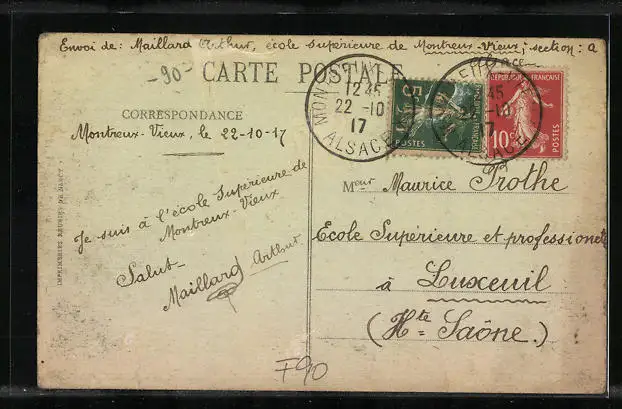 Envoi de: Maillard Arthur, école supérieure de Montreux-Vieux; section: a
Alsace
-90-
CARTE POSTALE
MONTREUX-VIEUX
12 45
22 -10
17
ALSACE
45
22 -10
17
ALSACE
5c
POSTES
RÉPUBLIQUE FRANÇAISE
10c
POSTES
CORRESPONDANCE
Montreux-Vieux, le 22-10-17
Je suis à l'école Supérieure de
Montreux-Vieux
Salut
Maillard Arthur
Meur Maurice Prothe
Ecole Supérieure et professionelle
à Luxeuil
(Hte Saône.)
IMPRIMERIES RÉUNIES DE NANCY
F90